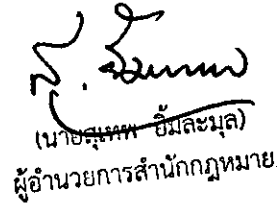 (นายสุเทพ อิ้มละมุล)
ผู้อำนวยการสำนักกฎหมาย